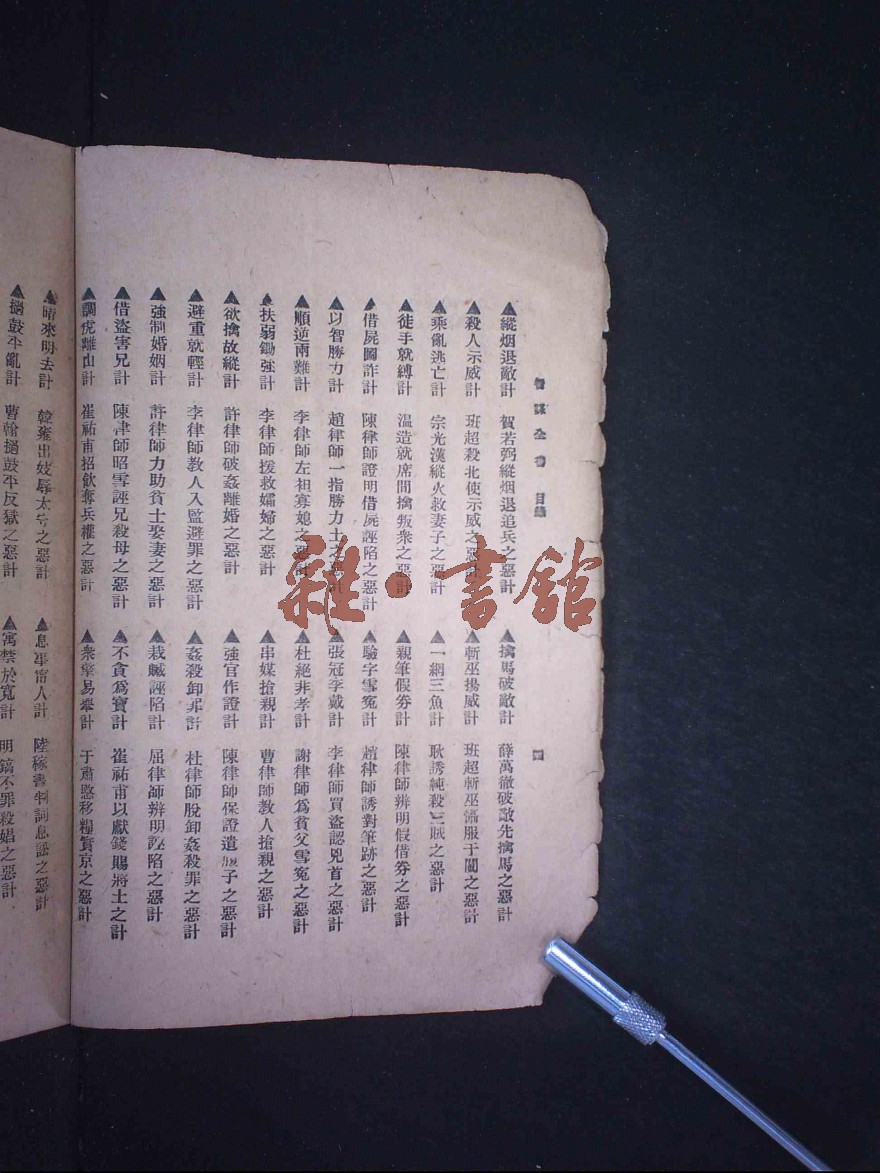 智謀全書 目錄 四
▲縱烟退敵計 賀若弼縱烟退追兵之惡計
▲殺人示威計 班超殺北使示威之惡計
▲乘亂逃亡計 宗光漢縱火救妻子之惡計
▲徒手就縛計 温造就席間擒叛衆之惡計
▲借屍圖詐計 陳律師證明借屍誣陷之惡計
▲以智勝力計 趙律師一指勝力士之惡計
▲順逆兩難計 李律師左袒寡媳之惡計
▲扶弱鋤強計 李律師援救孀婦之惡計
▲欲擒故縱計 許律師破姦離婚之惡計
▲避重就輕計 李律師教人入監避罪之惡計
▲強制婚姻計 許律師力助貧士娶妻之惡計
▲借盜害兄計 陳律師昭雪誣兄殺母之惡計
▲調虎離山計 崔祐甫招飲奪兵權之惡計
▲暗來明去計 韓雍出妓辱太守之惡計
▲撾鼓平亂計 曹翰撾鼓平反獄之惡計
▲擒馬破敵計 薛萬徹破敵先擒馬之惡計
▲斬巫揚威計 班超斬巫懾服于闐之惡計
▲一網三魚計 耿誘純殺三賊之惡計
▲親筆假券計 陳律師辨明假借券之惡計
▲驗字雪寃計 趙律師誘對筆跡之惡計
▲張冠李戴計 李律師買盜認兇首之惡計
▲杜絕非孝計 謝律師爲貧父雪寃之惡計
▲串媒搶親計 曹律師教人搶親之惡計
▲強官作證計 陳律師保證遺腹子之惡計
▲姦殺卸罪計 杜律師脫卸姦殺罪之惡計
▲栽贓誣陷計 屈律師辨明誣陷之惡計
▲不貪爲寶計 崔祐甫以獻錢賜將士之計
▲衆擎易舉計 于肅愍移糧實京之惡計
▲息事甯人計 陸稼書判詞息訟之惡計
▲寓禁於寬計 明鎬不罪殺娼之惡計
雜·書館